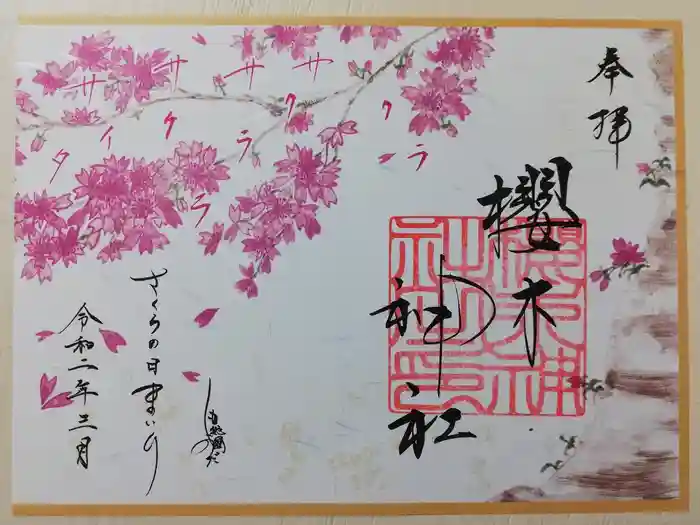 奉拝
櫻木
神社
サクラ
サクラ
サクラ
サイタ
さくらの日まいり
令和二年三月